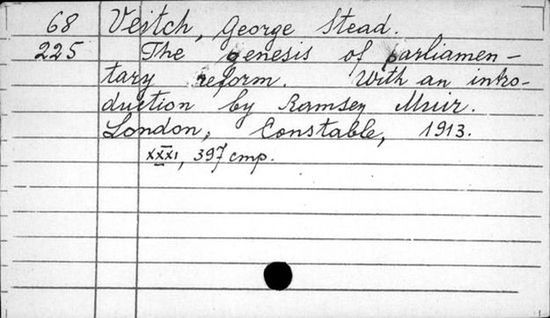 68 Veitch, George Stead.
225 The genesis of parliamen-
tary reform. With an intro-
duction by Ramsey Muir.
London, Constable, 1913.
XXXI, 397 стр.